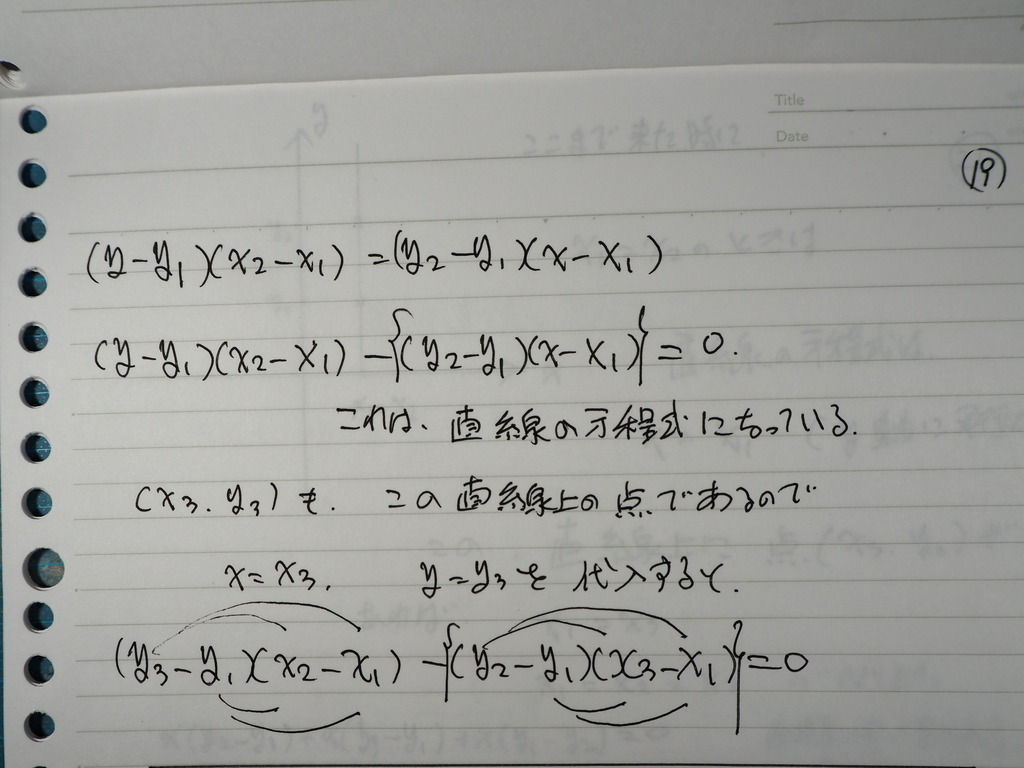 Title
Date
⑲
(y-y₁)(x₂-x₁) =(y₂-y₁)(x-x₁)
(y-y₁)(x₂-x₁) -{(y₂-y₁)(x-x₁)}=0.
これは、直線の方程式になっている.
(x₃. y₃) も. この直線上の点であるので
x=x₃. y=y₃を代入すると.
(y₃-y₁)(x₂-x₁) -{(y₂-y₁)(x₃-x₁)}=0